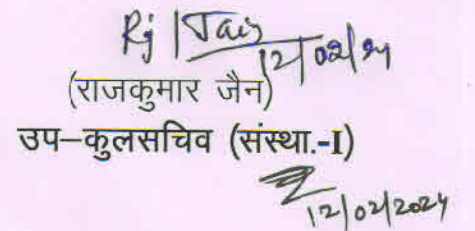 Rj | Jain
12/02/24
(राजकुमार जैन)
उप–कुलसचिव (संस्था.-I)
12/02/2024